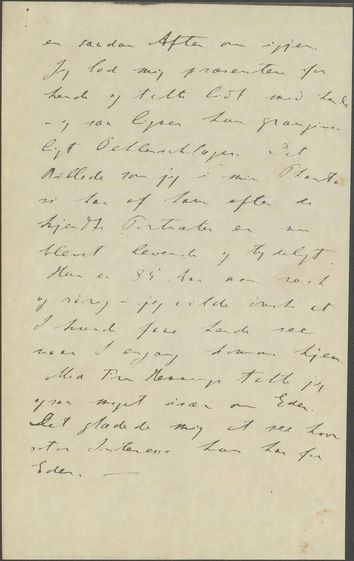 en saadan Aften om igjen.
Jeg lod mig præsentere for
hende og talte lidt med hende
– og saa ligner hun grangive-
ligt Oehlenschläger. Det
Billede som jeg i min Phanta-
si har af ham efter de
kjendte Portræter er nu
blevet levende og tydeligt.
Hun er 85 Aar men rask
og rørig – jeg vilde ønske at
I kunde faae hende see
naar I engang kommer hjem.
Med Fru Hennings talte jeg
ogsaa meget især om Eder.
Det glædede mig at see hvor
stor Interesse hun har for
Eder. —